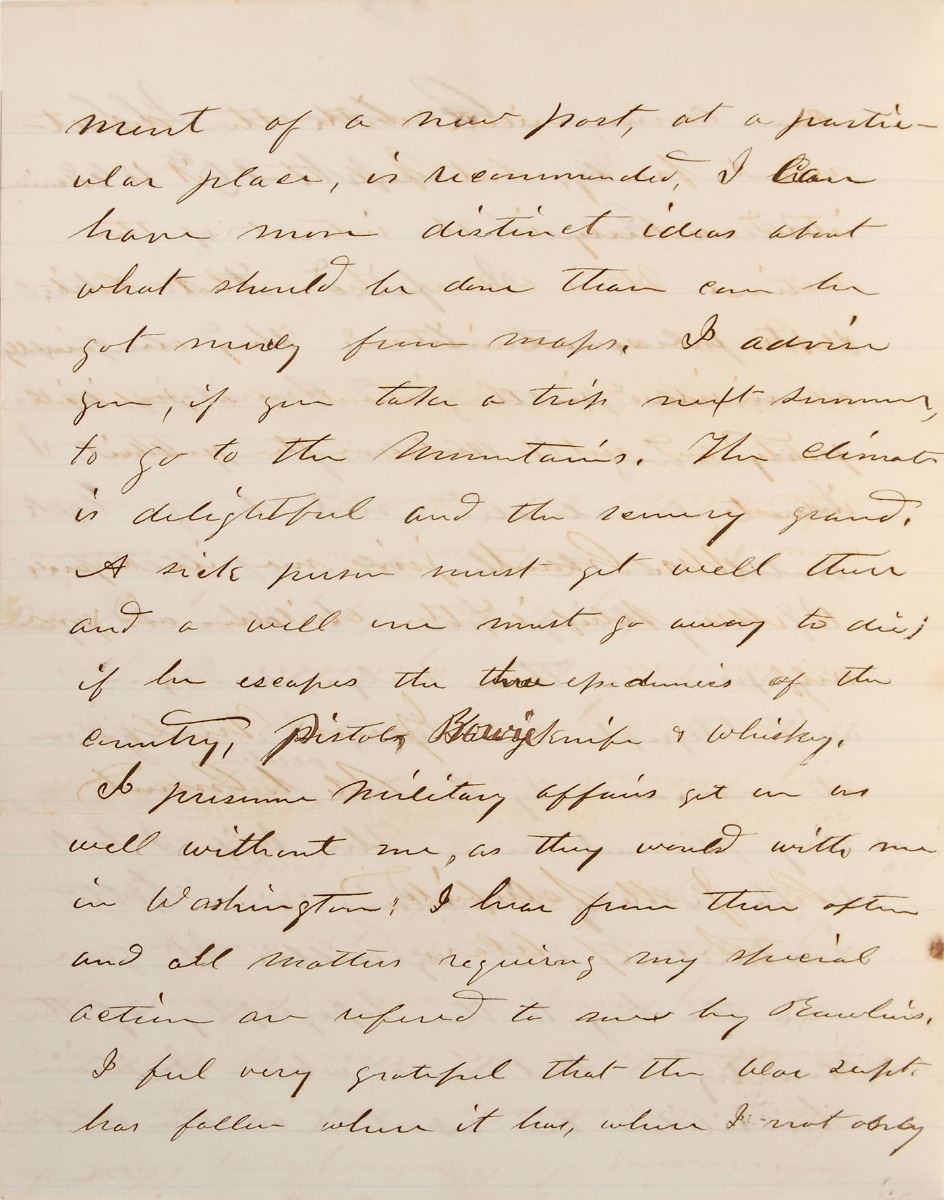 ment of a new post, at a partic-
ular place, is recommended, I can
have more distinct ideas about
what should be done than can be
got merely from maps. I advise
you, if you take a trip next summer,
to go to the Mountains. The climate
is delightful and the scenery grand.
A sick person must get well there
and a well one must go away to die;
if he escapes the three epedemics of the
country, Pistols, Bowie knife & whiskey.
I presume Military affairs get on as
well without me, as they would with me
in Washington; I hear from there often
and all matters requiring my special
action are refered to me by Rawlins.
I feel very grateful that the War Dept.
has fallen where it has, where I not only